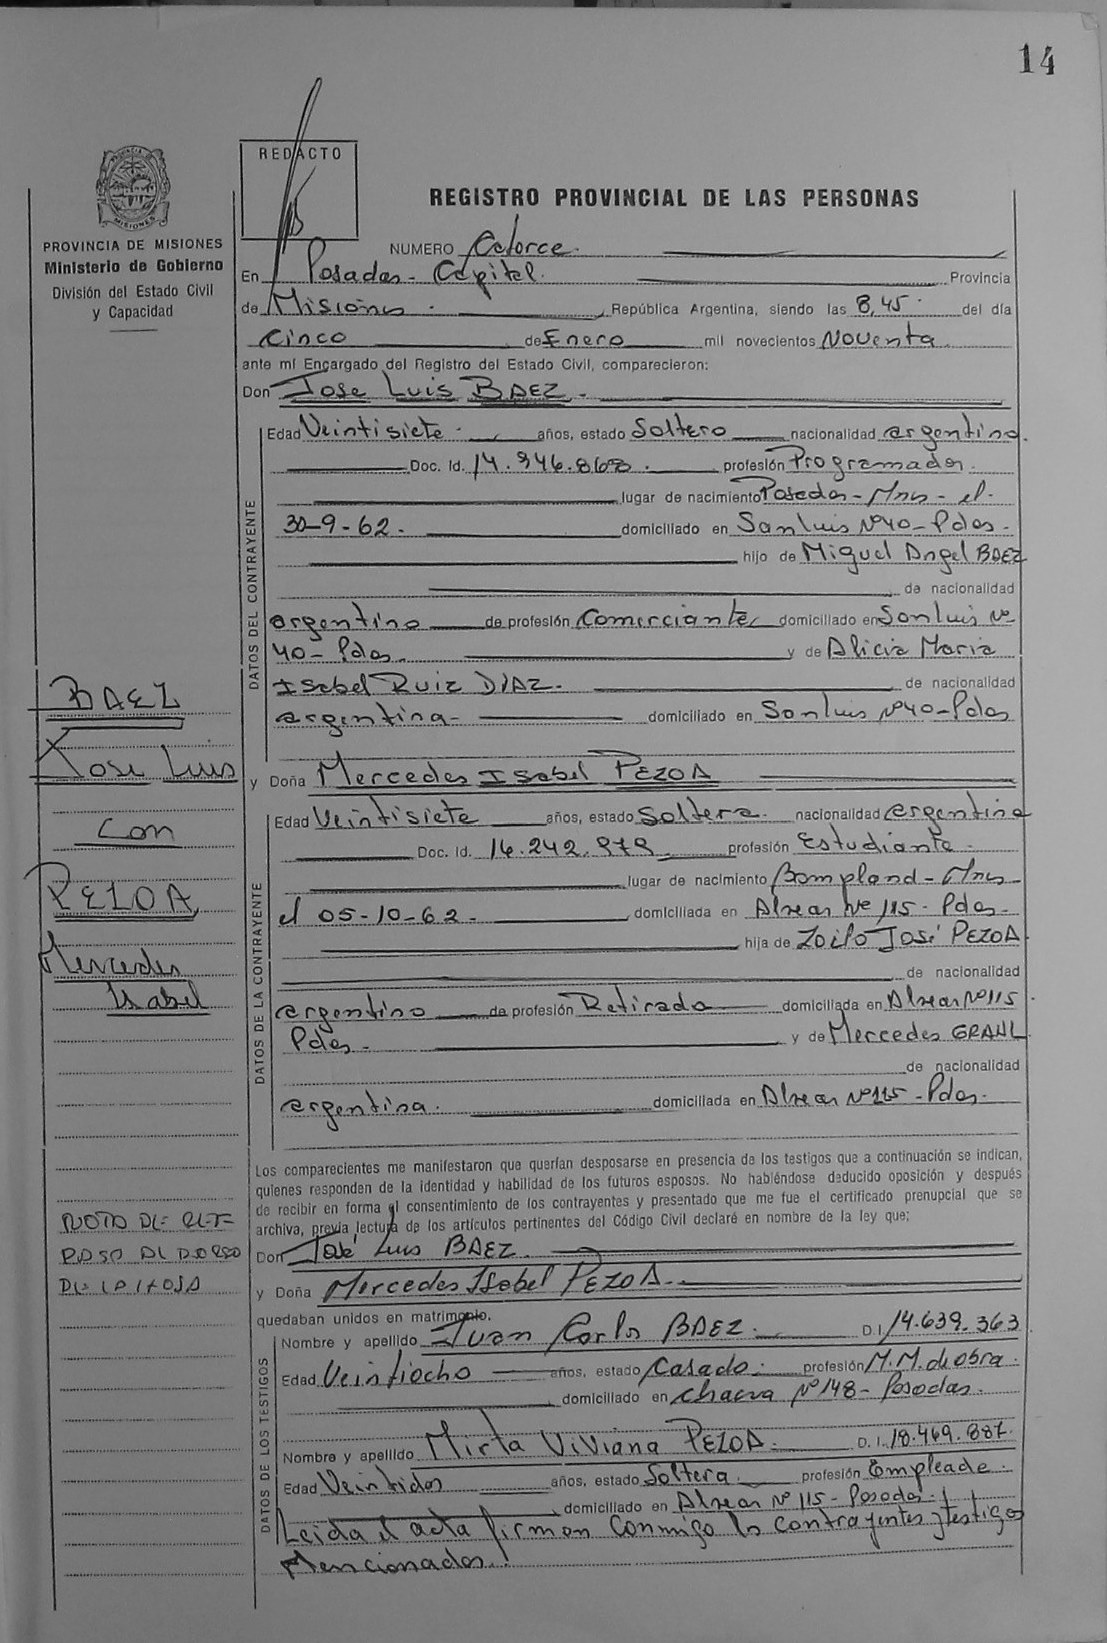 14
REDACTO
PROVINCIA DE MISIONES
Ministerio de Gobierno
División del Estado Civil
y Capacidad
REGISTRO PROVINCIAL DE LAS PERSONAS
NUMERO Catorce.
En Posadas - Capital. Provincia
de Misiones. República Argentina, siendo las 8,45 del día
Cinco de Enero mil novecientos Noventa
ante mí Encargado del Registro del Estado Civil, comparecieron:
Don Jose Luis BAEZ.
DATOS DEL CONTRAYENTE
Edad Veintisiete años, estado Soltero nacionalidad argentino.
Doc. Id. 14.946.868. profesión Programador.
lugar de nacimiento Posadas - Mnes - el
30-9-62. domiciliado en San Luis Nº 40 - Pdas.
hijo de Miguel Angel BAEZ
de nacionalidad
argentino de profesión Comerciante domiciliado en San Luis Nº
40 - Pdas. y de Alicia Maria
Isabel RUIZ DIAZ. de nacionalidad
argentina - domiciliado en San Luis Nº 40 - Pdas
y Doña Mercedes Isabel PEZOA
DATOS DE LA CONTRAYENTE
Edad Veintisiete años, estado Soltera. nacionalidad argentina
Doc. Id. 16.242.979. profesión Estudiante.
lugar de nacimiento Bompland - Mnes
el 05-10-62. domiciliada en Alvear Nº 115 - Pdas.
hija de Zoilo José PEZOA
de nacionalidad
argentino de profesión Retirado domiciliada en Alvear Nº 115
Pdas. y de Mercedes GRAHL
de nacionalidad
argentina. domiciliada en Alvear Nº 115 - Pdas.
BAEZ
Jose Luis
Con
PEZOA,
Mercedes
Isabel
Los comparecientes me manifestaron que querían desposarse en presencia de los testigos que a continuación se indican,
quienes responden de la identidad y habilidad de los futuros esposos. No habiéndose deducido oposición y después
de recibir en forma el consentimiento de los contrayentes y presentado que me fue el certificado prenupcial que se
archiva, previa lectura de los artículos pertinentes del Código Civil declaré en nombre de la ley que:
Don José Luis BAEZ.
y Doña Mercedes Isabel PEZOA.
quedaban unidos en matrimonio.
NOTA DE REF-
PASO AL DORSO
DE LA HOJA
DATOS DE LOS TESTIGOS
Nombre y apellido Juan Carlos BAEZ. D.I. 14.639.363
Edad Veintiocho años, estado Casado. profesión M.M. de obra.
domiciliado en chacra Nº 148 - Posadas.
Nombre y apellido Mirta Viviana PEZOA. D.I. 18.469.887.
Edad Veintidos años, estado Soltera. profesión Empleada.
domiciliado en Alvear Nº 115 - Posadas.
Leida el acta firman conmigo los contrayentes y testigos
Mencionados.